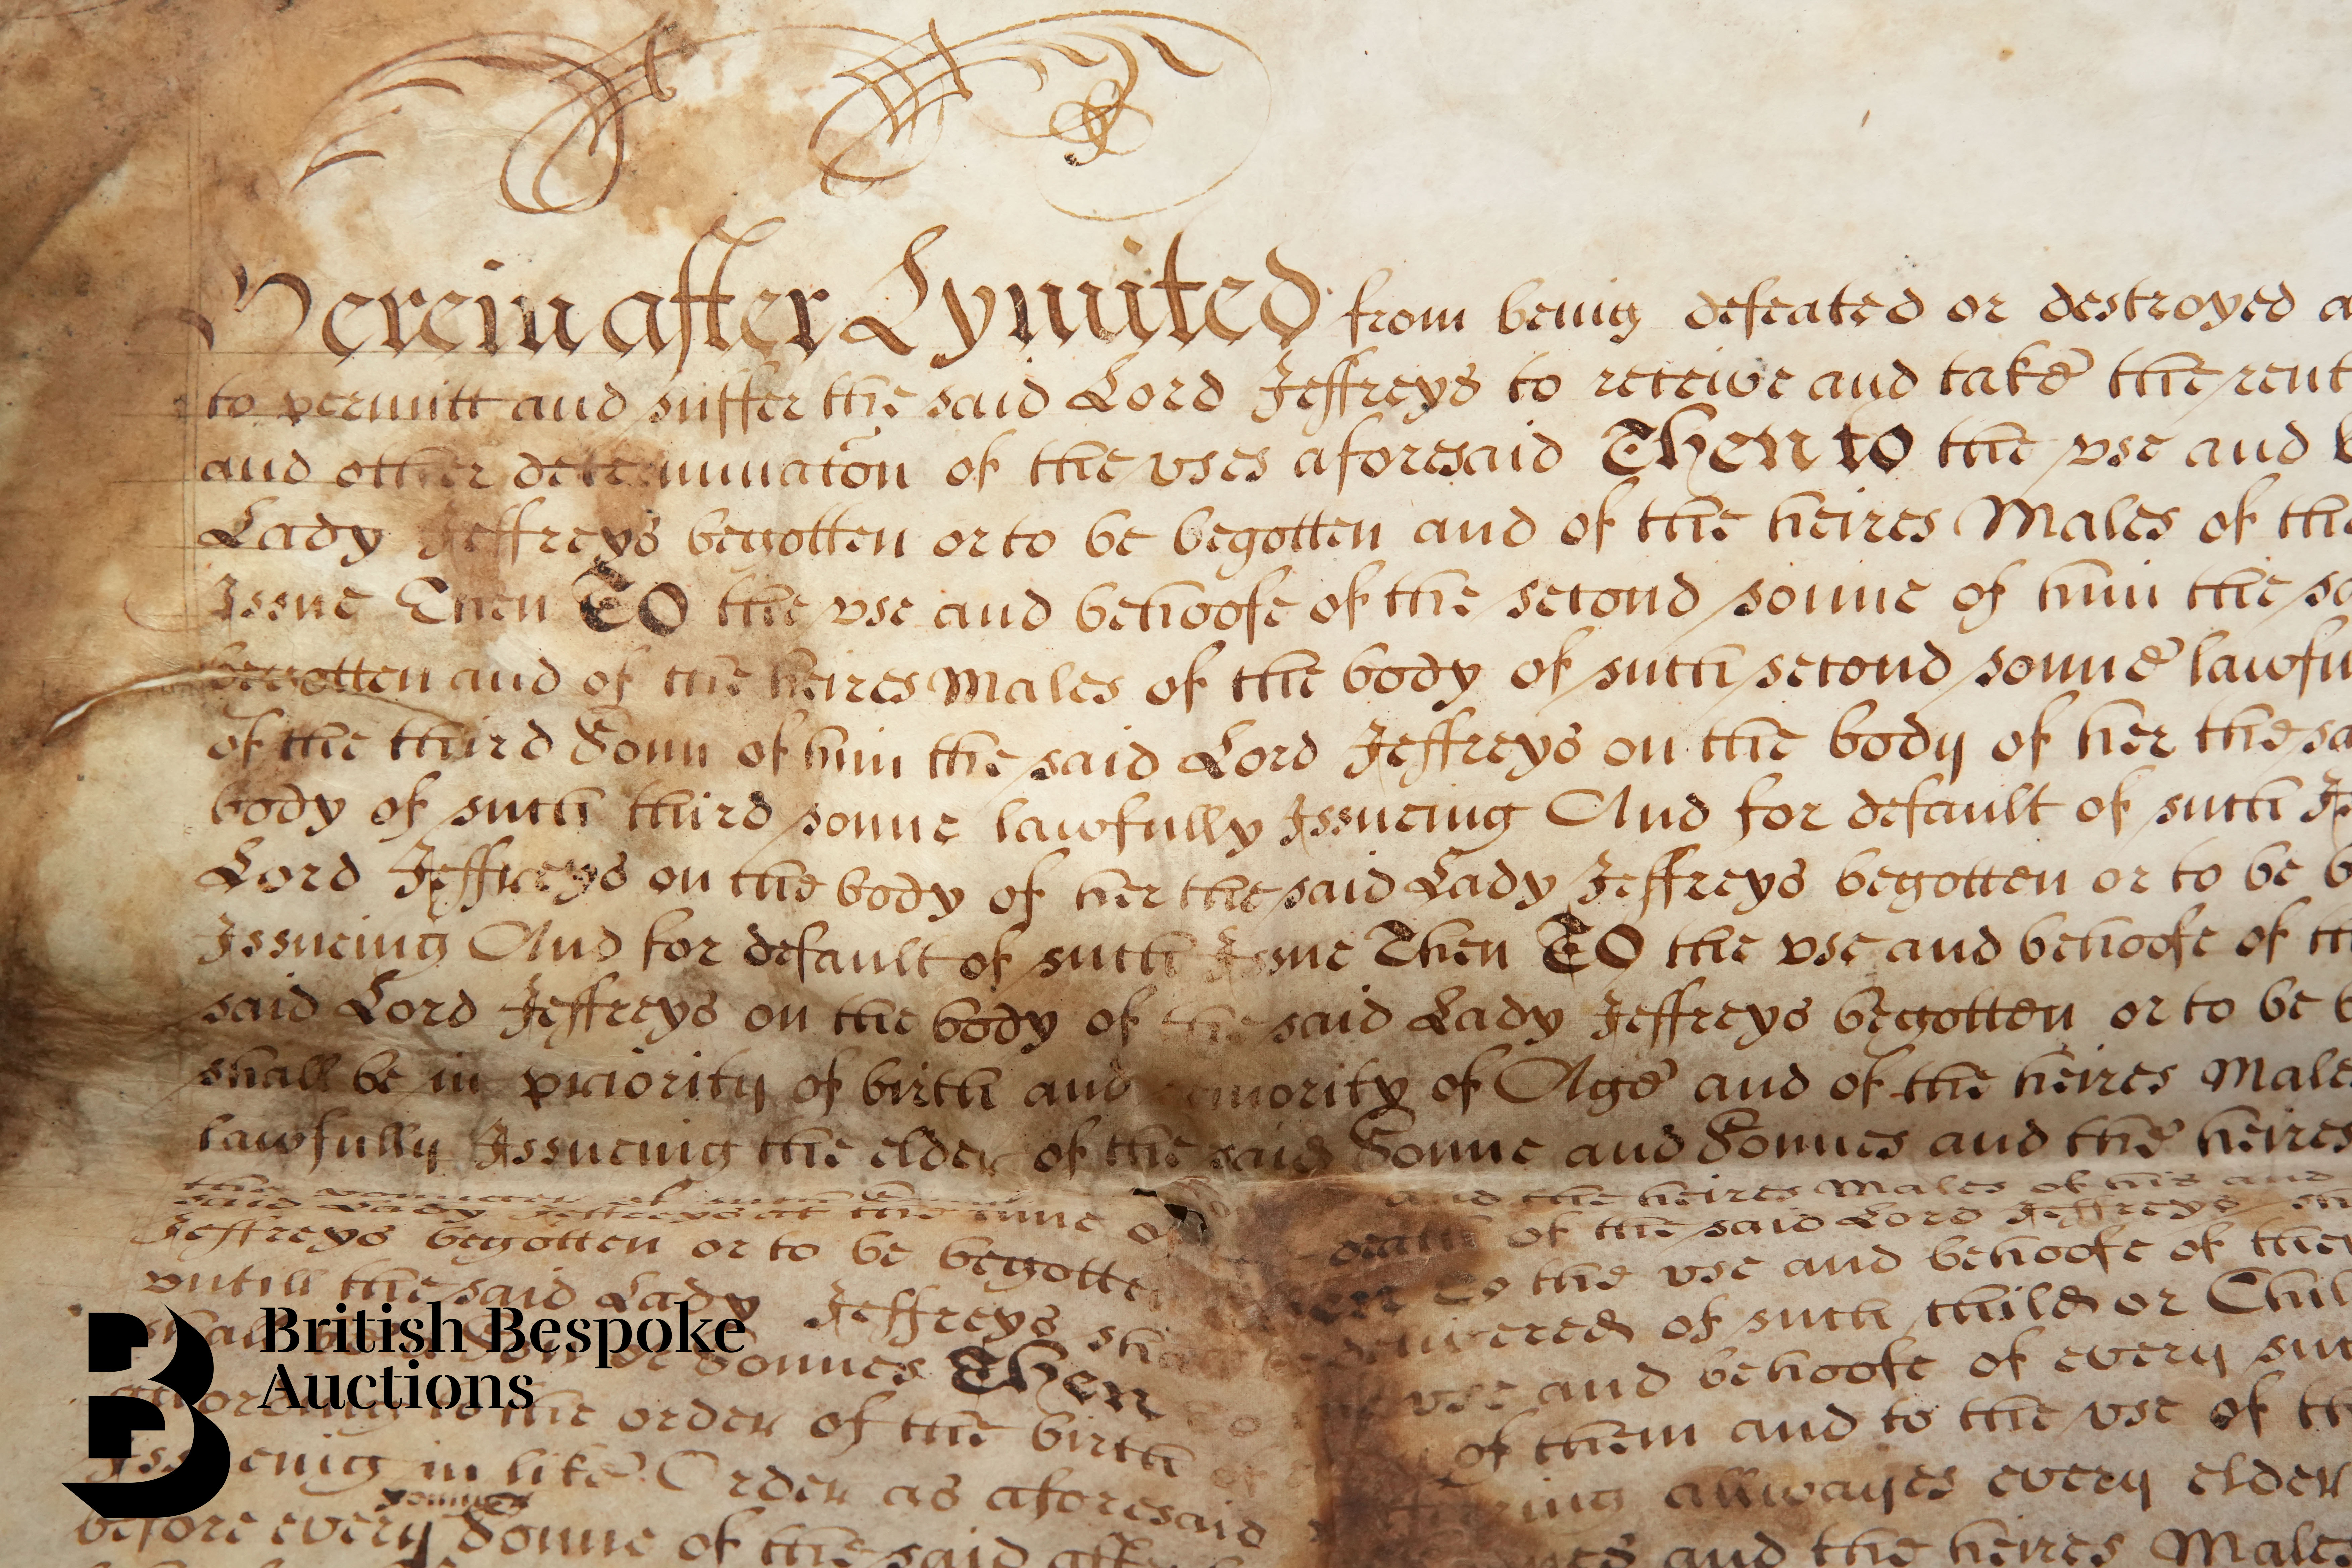 Hereinafter Lymited from being defeated or destroyed
to permitt and suffer the said Lord Jeffreys to receive and take the rent
and other determinacon of the vses aforesaid Then to the vse and
Lady Jeffreys begotten or to be begotten and of the heires Males of the
Issue Then TO the vse and behoofe of the second sonne of him the
begotten and of the heires Males of the body of such second sonne lawfu
of the third Sonn of him the said Lord Jeffreys on the body of her the sa
body of such third sonne lawfully Issueing And for default of such
Lord Jeffreys on the body of her the said Lady Jeffreys begotten or to be
Issueing And for default of such Issue Then TO the vse and behoofe of
said Lord Jeffreys on the body of the said Lady Jeffreys begotten or to be
shall be in priority of birth and of Age and of the heires Male
lawfully Issueing the elder of the said Sonne and Sonnes and the heires
the younger of such and the heires Males of his and
said Lady Jeffreys at the time death of the said Lord Jeffreys
Jeffreys begotten or to be begotte To the vse and behoofe of
vntill the said Lady Jeffreys of such child or Chil
shall Sonnes Then vse and behoofe of every suc
to the order of the birth of them and to the vse of
in like Order as aforesaid allwayes every elder
younger
before every Sonne of the said and the heires Male
British Bespoke
Auctions